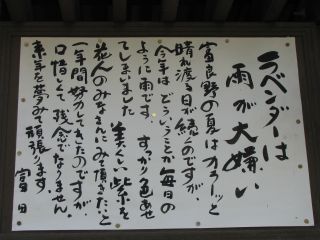 ラベンダーは
雨が大嫌い
富良野の夏はカラーッと
晴れ渡る日が続くのですが、
今年はどういうことか毎日の
ように雨です。すっかり色あせ
てしまいました 美しい紫を
花人のみなさんにみて頂きたいと
一年間努力してきたのですが、
口惜しくて残念でなりません。
来年を夢みて頑張ります。
富田